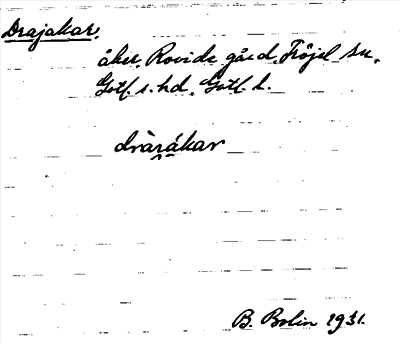 Drajakar,
åker, Rovide gård, Fröjel sn,
Gotl. s. hd, Gotl. l.
dràrákar
B. Bolin 1931.